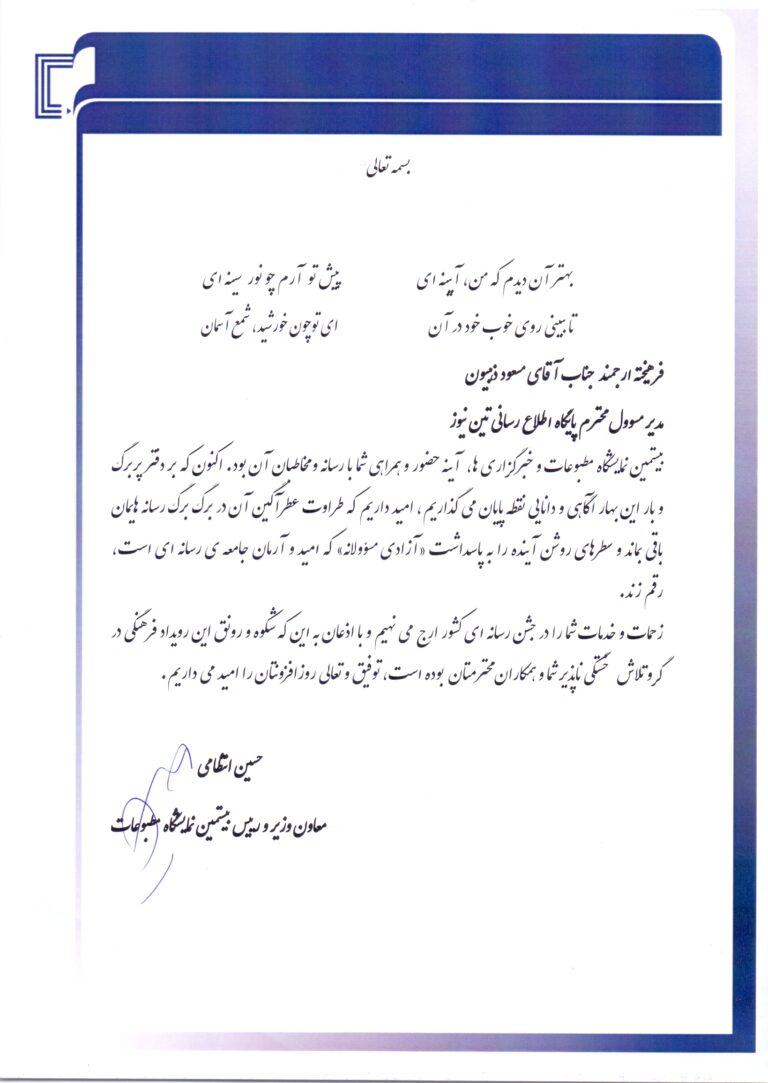 بسمه تعالی
بهتر آن دیدم که من، آیینه ای پیش تو آرم چو نور سینه ای
تا ببینی روی خوب خود در آن ای تو چون خورشید، شمع آسمان
فرهیخته ارجمند جناب آقای مسعود ذهبیون
مدیر مسوول محترم پایگاه اطلاع رسانی تین نیوز
بیستمین نمایشگاه مطبوعات و خبرگزاری ها، آینه حضور و همراهی شما با رسانه و مخاطبان آن بود. اکنون که بر دفتر پر برگ
و بار این بهار آگاهی و دانایی نقطه پایان می گذاریم، امید داریم که طراوت عطرآگین آن در برگ برگ رسانه هایمان
باقی بماند و سطرهای روشن آینده را به پاسداشت «آزادی مسؤولانه» که امید و آرمان جامعه ی رسانه ای است،
رقم زند.
زحمات و خدمات شما را در جشن رسانه ای کشور ارج می نهیم و با اذعان به این که شکوه و رونق این رویداد فرهنگی در
گرو تلاش خستگی ناپذیر شما و همکاران محترمتان بوده است، توفیق و تعالی روزافزونتان را امید می داریم.
حسین انتظامی
معاون وزیر و رییس بیستمین نمایشگاه مطبوعات